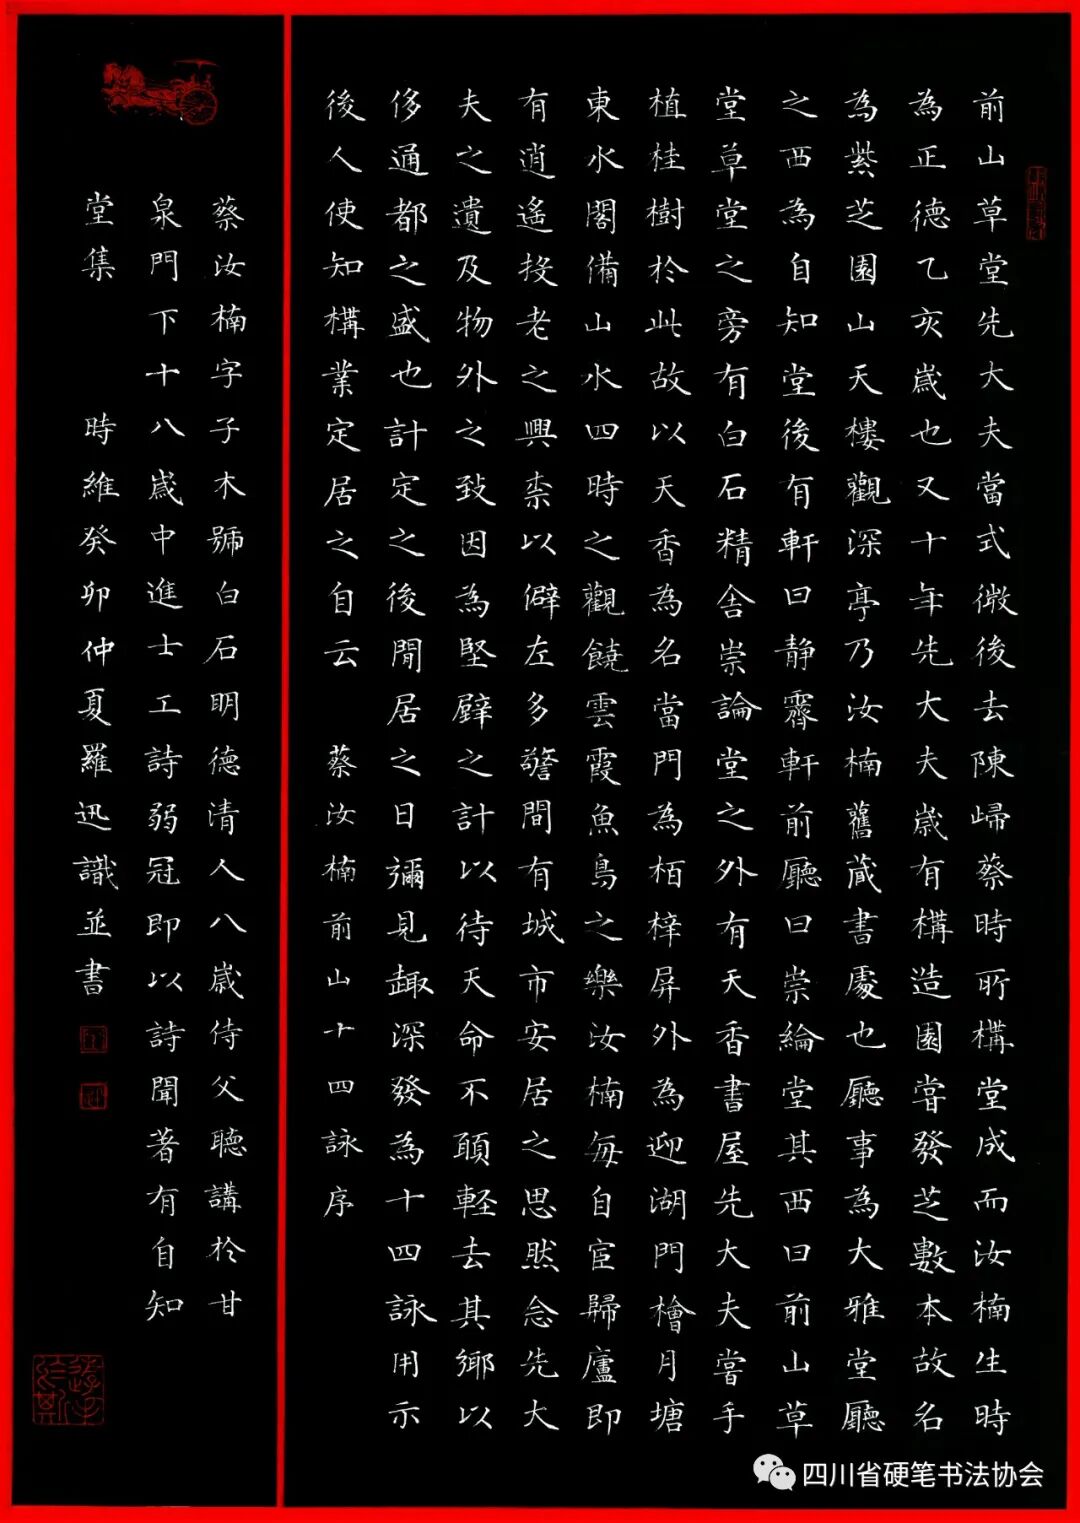 前山草堂先大夫當式微後去陳歸蔡時所構堂成而汝楠生時
為正德乙亥歲也又十年先大夫歲有構造園嘗發芝數本故名
為紫芝園山天樓觀深亭乃汝楠舊藏書處也廳事為大雅堂廳
之西為自知堂後有軒曰靜霽軒前廳曰崇綸堂其西曰前山草
堂草堂之旁有白石精舍崇論堂之外有天香書屋先大夫嘗手
植桂樹於此故以天香為名當門為栢梓屏外為迎湖門檜月塘
東水閣備山水四時之觀饒雲霞魚鳥之樂汝楠每自宦歸廬即
有逍遙投老之興柰以僻左多警間有城市安居之思然念先大
夫之遺及物外之致因為堅壁之計以待天命不願輕去其鄉以
侈通都之盛也計定之後閒居之日彌見趣深發為十四詠用示
後人使知構業定居之自云 蔡汝楠前山十四詠序
蔡汝楠字子木號白石明德清人八歲侍父聽講於甘
泉門下十八歲中進士工詩弱冠即以詩聞著有自知
堂集 時維癸卯仲夏羅迅識並書
四川省硬笔书法协会